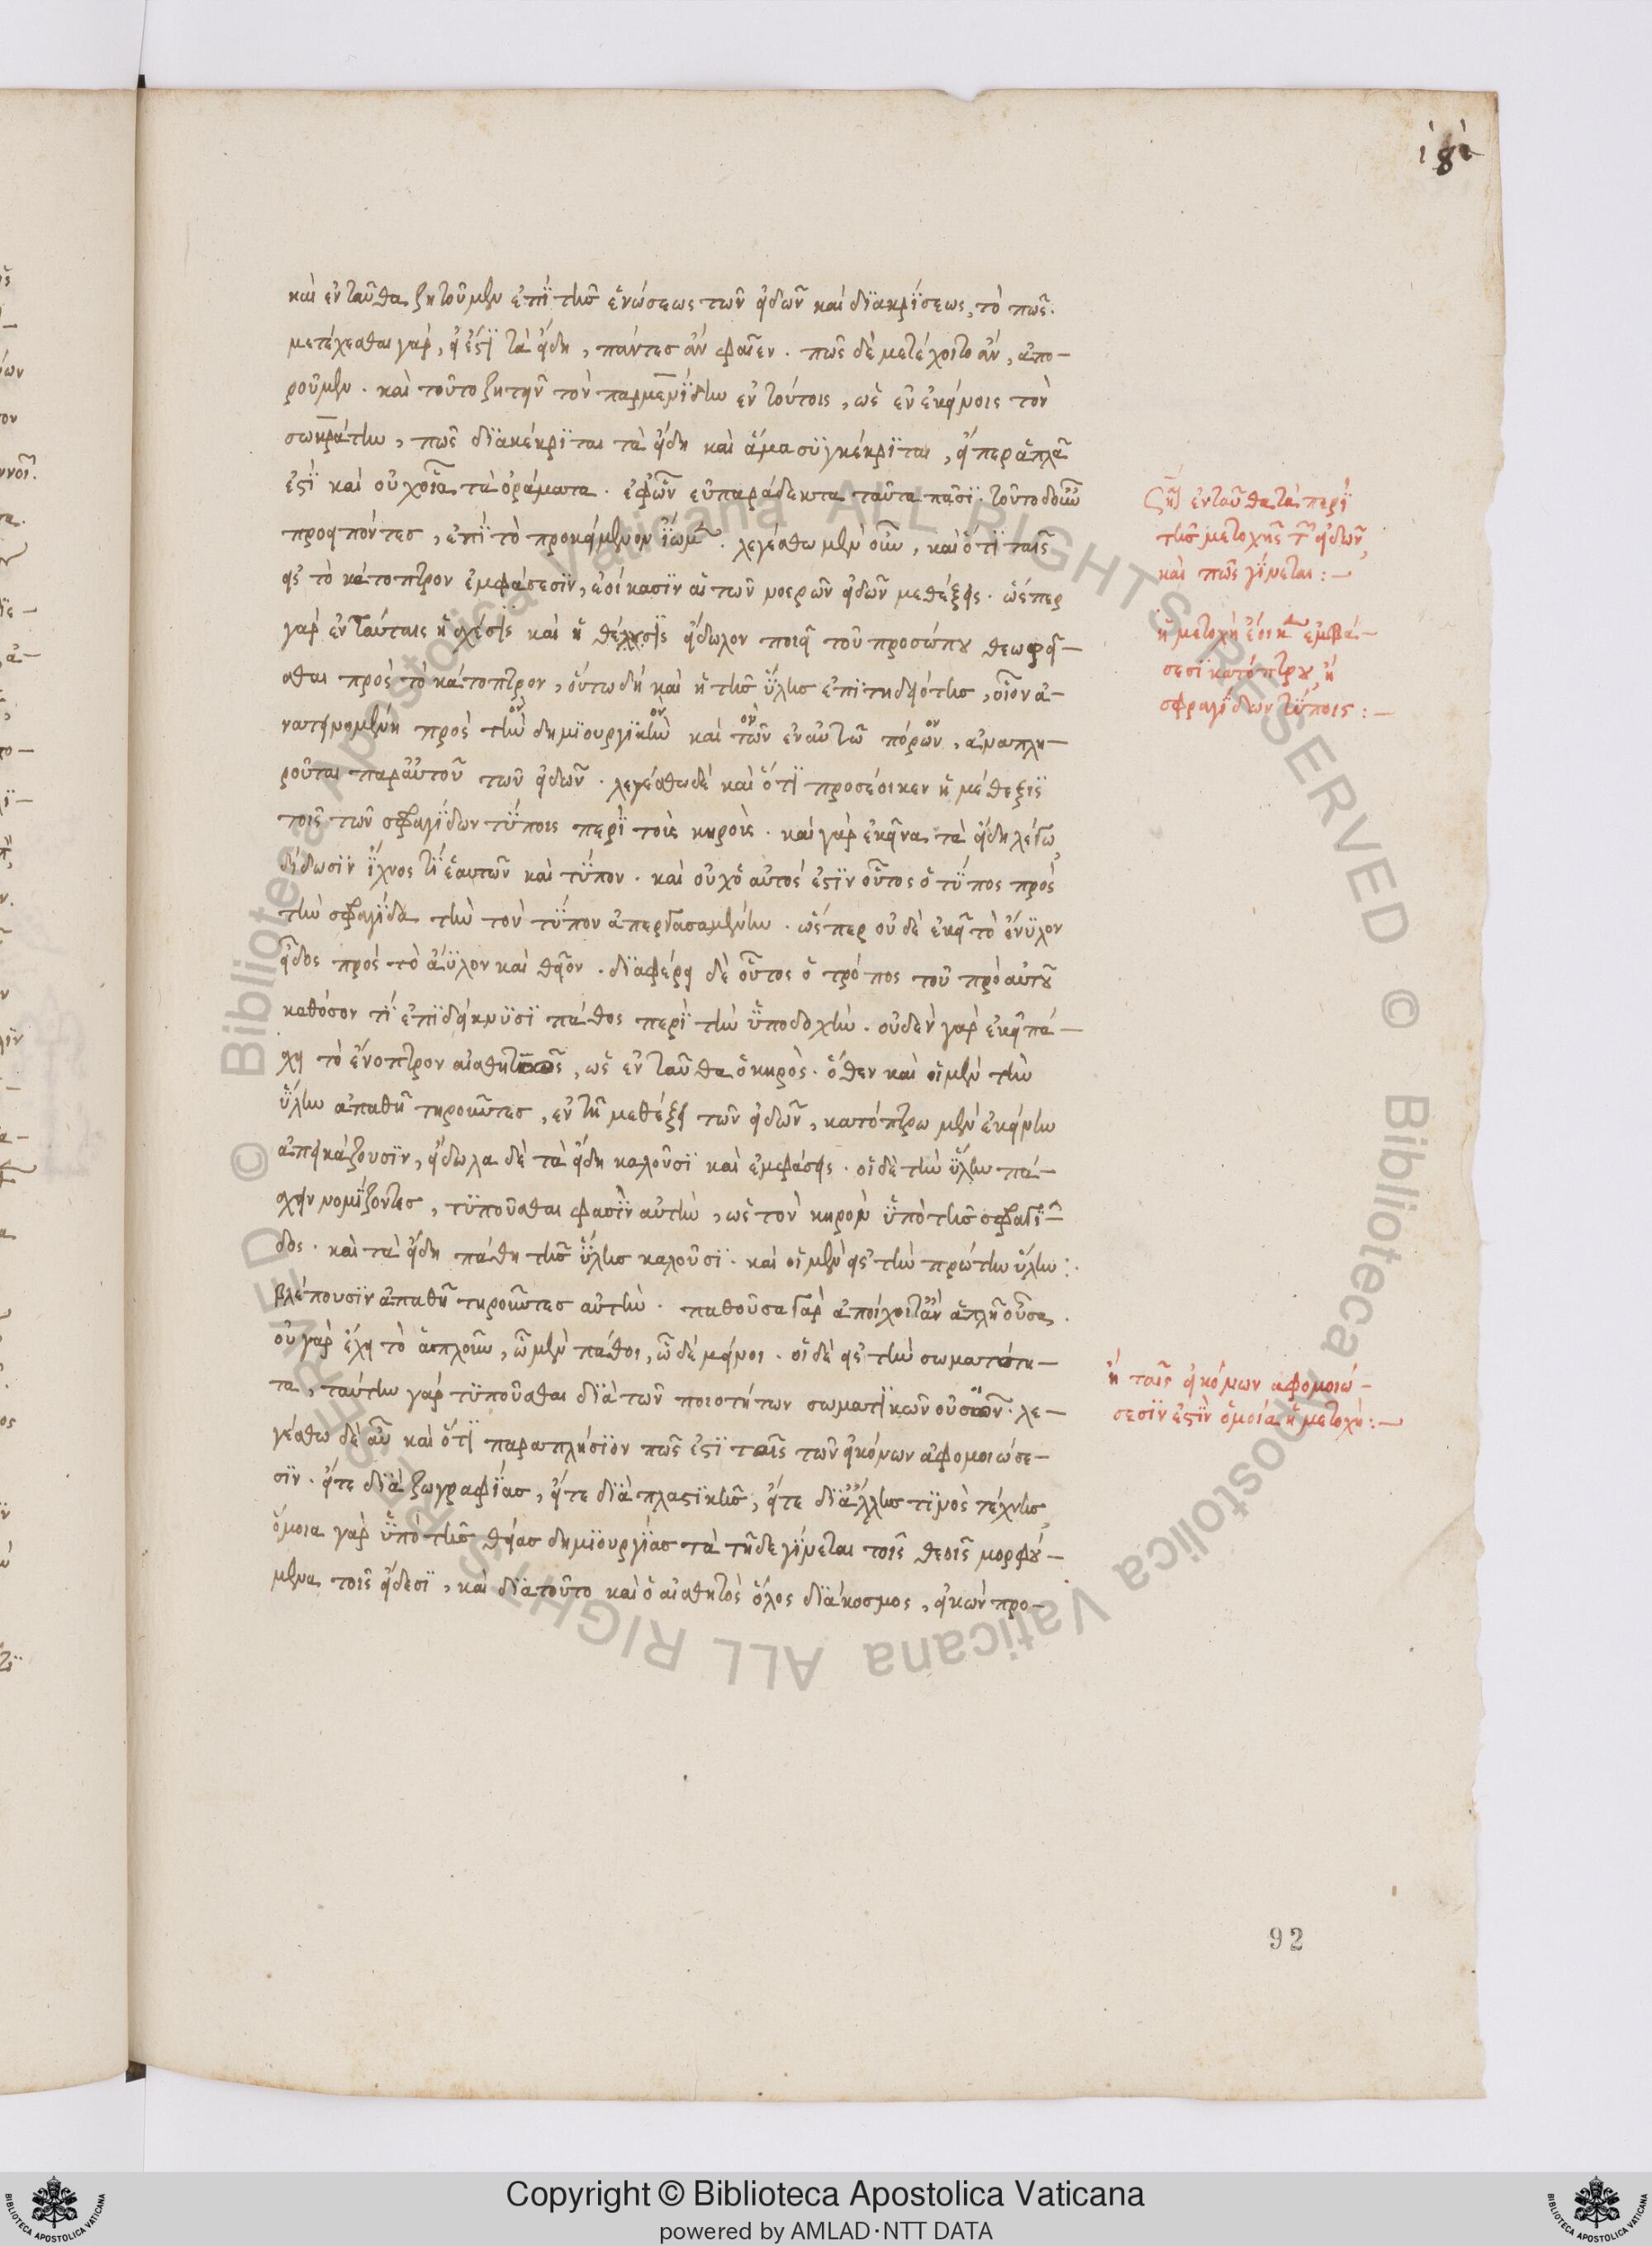 181
καὶ ἐνταῦθα ζητοῦμεν ἐπὶ τῆς ἑνώσεως τῶν εἰδῶν καὶ διακρίσεως, τὸ πῶς.
μετέχεσθαι γάρ, εἰ ἔστι τὰ εἴδη, πάντες ἂν φαῖεν. πῶς δὲ μετέχοιτο ἄν, ἀπο-
ροῦμεν. καὶ τοῦτο ζητεῖν τὸν παρμενίδην ἐν τούτοις, ὡς ἐν ἐκείνοις τὸν
σωκράτην, πῶς διακέκριται τὰ εἴδη καὶ ἅμα συγκέκριται, εἴπερ ἁπλᾶ
ἐστὶ καὶ οὐχ οἷα τὰ ὁράματα. ἐφ' ὧν εὐπαράδεκτα ταῦτα πᾶσι. τοῦτο δ' οὖν
προειπόντες, ἐπὶ τὸ προκείμενον ἴωμεν. λεγέσθω μὲν οὖν, καὶ ὅτι ταῖς
εἰς τὸ κάτοπτρον ἐμφάσεσιν, ἐοίκασιν αἱ τῶν νοερῶν εἰδῶν μεθέξεις. ὥσπερ
γὰρ ἐν ταύταις ἡ σχέσις καὶ ἡ θέλησις εἴδωλον ποιεῖ τοῦ προσώπου θεωρεῖ-
σθαι πρὸς τὸ κάτοπτρον, οὕτω δὴ καὶ ἡ τῆς ὕλης ἐπιτηδειότης, οἷον ἀ-
νατεινομένη πρὸς τὴν δημιουργικὴν καὶ τῶν ἐν αὐτῶ πόρων, ἀναπλη-
ροῦται παρ' αὐτοῦ τῶν εἰδῶν. λεγέσθω δὲ καὶ ὅτι προσέοικεν ἡ μέθεξις
τοῖς τῶν σφραγίδων τύποις περὶ τοὺς κηρούς. καὶ γὰρ ἐκεῖνα τὰ εἴδη λέγω,
δίδωσιν ἴχνος τὶ ἑαυτῶν καὶ τύπον. καὶ οὐχ ὁ αὐτός ἐστιν οὗτος ὁ τύπος πρὸς
τὴν σφραγίδα τὴν τὸν τύπον ἀπεργασαμένην. ὥσπερ οὐδὲ ἐκεῖ τὸ ἔνυλον
εἶδος πρὸς τὸ ἄυλον καὶ θεῖον. διαφέρει δὲ οὗτος ὁ τρόπος τοῦ πρὸ αὐτοῦ
καθόσον τί ἐπιδείκνυσι πάθος περὶ τὴν ὑποδοχήν. οὐδὲν γὰρ ἐκεῖ πά-
σχει τὸ ἔνοπτρον αἰσθητικῶς, ὡς ἐνταῦθα ὁ κηρός. ὅθεν καὶ οἱ μὲν τὴν
ὕλην ἀπαθῆ τηροῦντες, ἐν τῆ μεθέξει τῶν εἰδῶν, κατόπτρω μὲν ἐκείνην
ἀπεικάζουσιν, εἴδωλα δὲ τὰ εἴδη καλοῦσι καὶ ἐμφάσεις. οἱ δὲ τὴν ὕλην πά-
σχειν νομίζοντες, τυποῦσθαι φασὶν αὐτήν, ὡς τὸν κηρὸν ὑπὸ τῆς σφραγῖ-
δος. καὶ τὰ εἴδη πάθη τῆς ὕλης καλοῦσι. καὶ οἱ μὲν εἰς τὴν πρώτην ὕλην:
βλέπουσιν ἀπαθῆ τηροῦντες αὐτήν. παθοῦσα γὰρ ἀποίχοιτ' ἂν ἁπλῆ οὖσα.
οὐ γὰρ ἔχει τὸ ἁπλοῦν, ὧ μὲν πάθοι, ὧ δὲ μείνοι. οἱ δὲ εἰς τὴν σωματότη-
τα, ταύτην γὰρ τυποῦσθαι διὰ τῶν ποιοτήτων σωματικῶν οὐσῶν. λε-
γέσθω δὲ αὖ καὶ ὅτι παραπλήσιόν πως ἐστὶ ταῖς τῶν εἰκόνων ἀφομοιώσε-
σιν. εἴτε διὰ ζωγραφίας, εἴτε διὰ πλαστικῆς, εἴτε δι' ἄλλης τινὸς τέχνης,
ὅμοια γὰρ ὑπὸ τῆς θείας δημιουργίας τὰ τῆδε γίνεται τοῖς θεοῖς μορφού-
μενα τοῖς εἴδεσι, καὶ διατοῦτο καὶ ὁ αἰσθητὸς ὅλος διάκοσμος, εἰκὼν προ-
ἐνταῦθα τὰ περὶ
τῆς μετοχῆς τῶν εἰδῶν,
καὶ πῶς γίνεται:-
ἡ μετοχὴ ἔοικεν ἐμφά-
σεσι κατόπτρου, ἢ
σφραγίδων τύποις:-
ἢ ταῖς εἰκόνων ἀφομοιώ-
σεσιν ἐστὶν ὁμοία ἡ μετοχή:-
92
© Biblioteca Apostolica Vaticana ALL RIGHTS RESERVED © Biblioteca Apostolica Vaticana ALL RIGHTS RESERVED
Copyright © Biblioteca Apostolica Vaticana
powered by AMLAD·NTT DATA
BIBLIOTECA APOSTOLICA VATICANA
BIBLIOTECA APOSTOLICA VATICANA